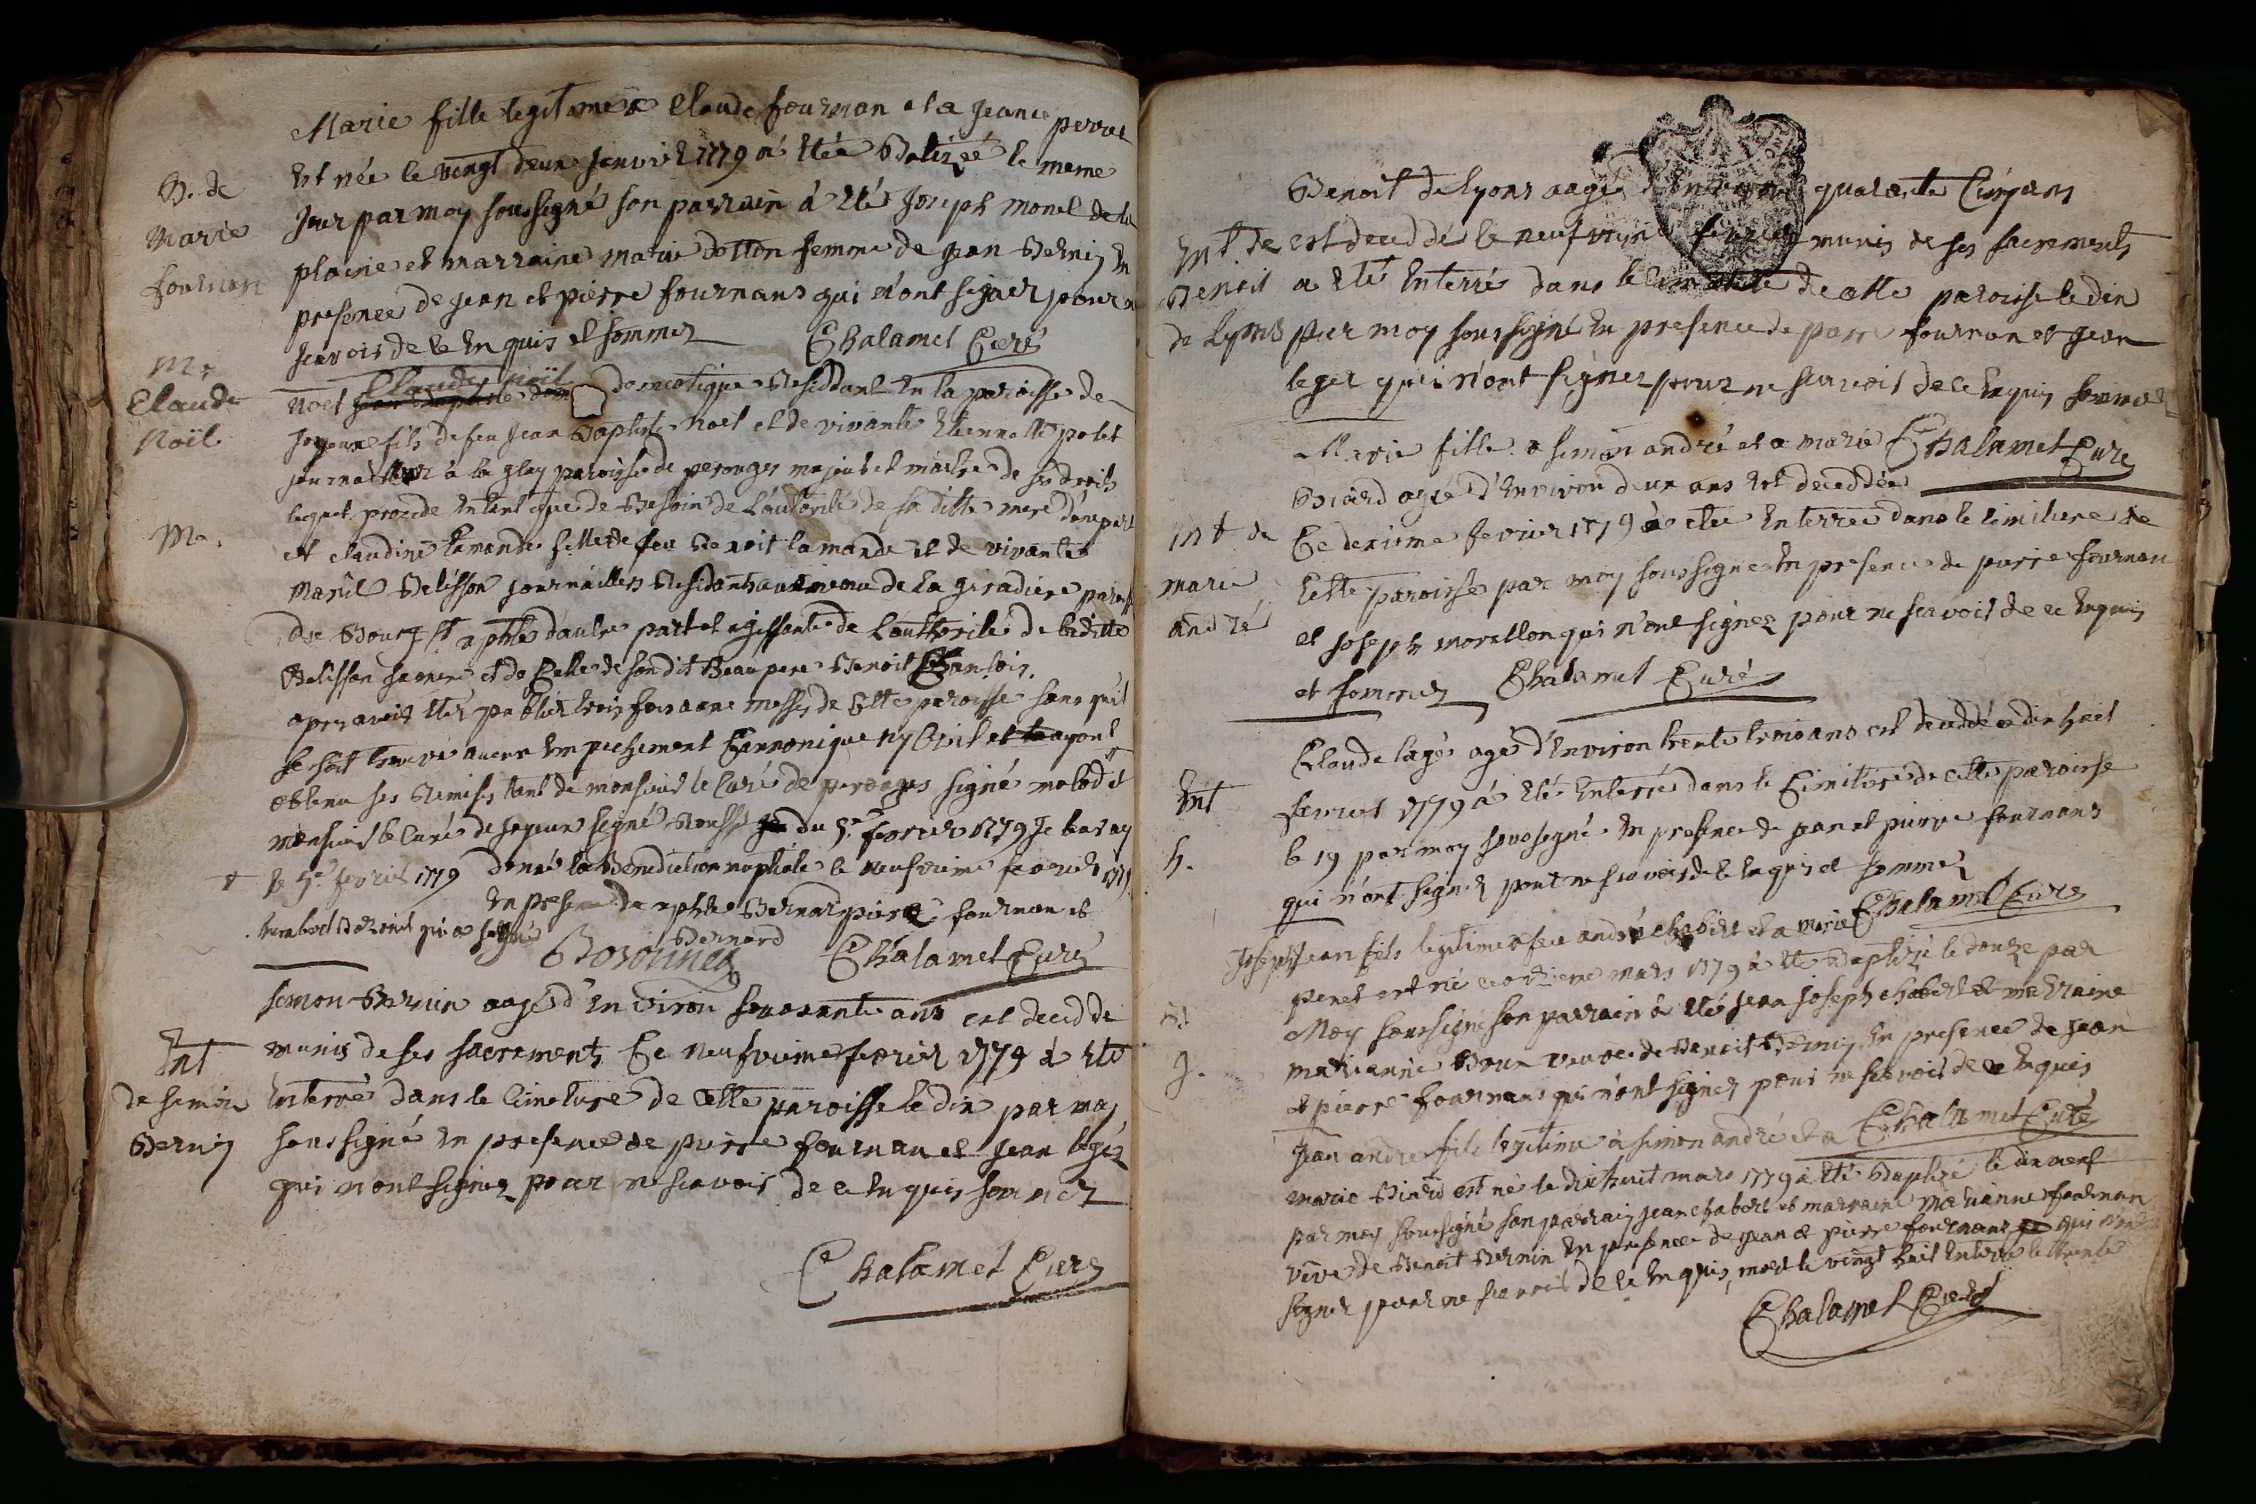 Marie fille legitime a Claude fournan et a jeanne perret
B. de
Marie
fournan
est née le vingt deux janvier 1779 a étée Batizéé le meme
jour par moy soussigné son parrain à été Joseph monet de la
plaine et marraine marie dotton femme de jean Bernin en
presence de jean et pierre fournans qui n'ont signer pour ne
scavois de ce enquis et sommez Chalamel Curé
M.
Claude
Noël
Claude noël
noel domestique Residdant en la paroisse de
joyeux fils de feu jean Baptiste noel et de vivante Etiennette polet
journallier à la glay paroisse de perouges majeur et maitre de ses droits
lequel procede en tant que de Besoin de L'autorité de sa ditte mere d'une part
M.
et claudine Lamande fille de feu Benoit lamande et de vivante
Marie Belisson journailler Residant au hameau de la giradiere paroisse
de Bourg St. Cphle d'autre part et agissante de L'authorité de laditte
Belisson sa mere et de Celle de son dit Beau pere Benoit
apres avoir étéz publier trois fois a nos messes de cette paroisse sans qu'il
se soit trouvé aucun empechement Cannonique ny Civil et ayant
obtenu ses Remises tant de monsieur le Curé de perouges signé
monsieur le Curé de joyeux signé Rousset du 5e. fevrier 1779 je leur ay
+ le 5e. fevrier 1779 donné la Benediction nuptiale le neufvieme fevrier 1779
en presence de Bernar pierre fournan et
Benoit qui a signé
Bernard Chalamel Curé
simon Bernin aagé d'environ soixante ans est decedde
Ent
de simon
Bernin
munis de ses sacrements Ce neufvieme fevrier 1779 à été
Enterré dans le Cimeture de Cette paroisse le dix par moy
soussigné en presence de pierre fournan et jean legér
qui n'ont signez pour ne scavois de ce enquis sommez
Chalamel Curé
Benoit de lyons aagé d'environ quarante Cinq ans
Ent. de
Benoit
de Lyons
est deceddé le neufvieme fevrier munis de ses sacrements
a été Enterrés dans le Cimeture de cette paroisse le dix
par moy soussigné en presence de pierre fournan et jean
leger qui n'ont signez pour ne scavois de ce enquis sommez
Chalamel Curé
Marie fille a simon andré et a marie
Biard agéé d'environ deux ans est deceddée
Ent de
marie
andré
Ce dexieme fevrier 1779 a etée enterrée dans le cimiture de
Cette paroisse par moy soussigné en presence de pierre fournan
et joseph morellon qui n'ont signez pour ne scavois de ce enquis
et sommez Chalamel Curé
Claude lagé agé d'environ trente trois ans est deceddé a dix huit
Ent
h.
fevrier 1779 a été enterré dans le Cimiture de cette paroisse
le 19 par moy soussigné en presence de jean et pierre fournans
qui n'ont signez pour ne scavois de ce enquis et sommez
Chalamel Curé
Joseph jean fils legitime a feu andré chabert et a marie
penet est né ce onzieme mars 1779 a été Baptizé le douze par
B.
g.
Moy soussigné son parrain a été jean joseph chabert et marraine
marianne Boux veuve de Benoit Bernin en presence de jean
et pierre fournans qui n'ont signez pour ne scavois de ce enquis
Chalamel Curé
jean andré fils legitime à simon andré et a
marie Biard est né le dix huit mars 1779 a été Baptizé le dix neuf
par moy soussigné son parrain jean chabert et marraine marianne fournan
veve de Benoit Bernin en presence de jean et pierre fournans qui n'ont
signer pour ne scavois de ce enquis, mort le vingt huit enterré le trente
Chalamel Curé